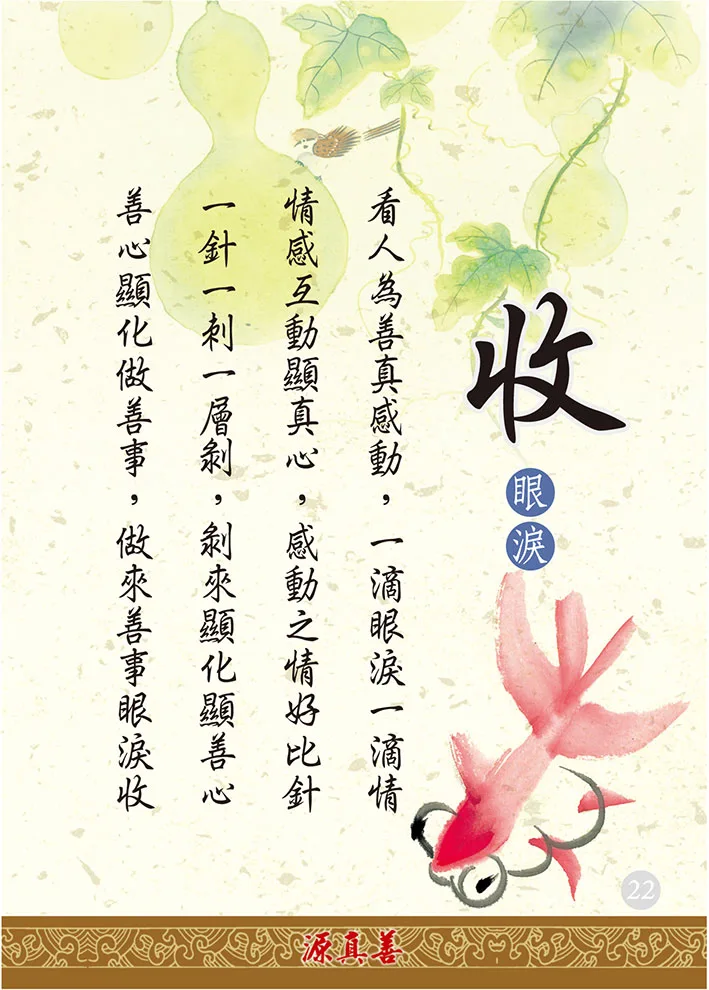 收
眼淚
看人為善真感動，一滴眼淚一滴情
情感互動顯真心，感動之情好比針
一針一刺一層剝，剝來顯化顯善心
善心顯化做善事，做來善事眼淚收
22
源真善